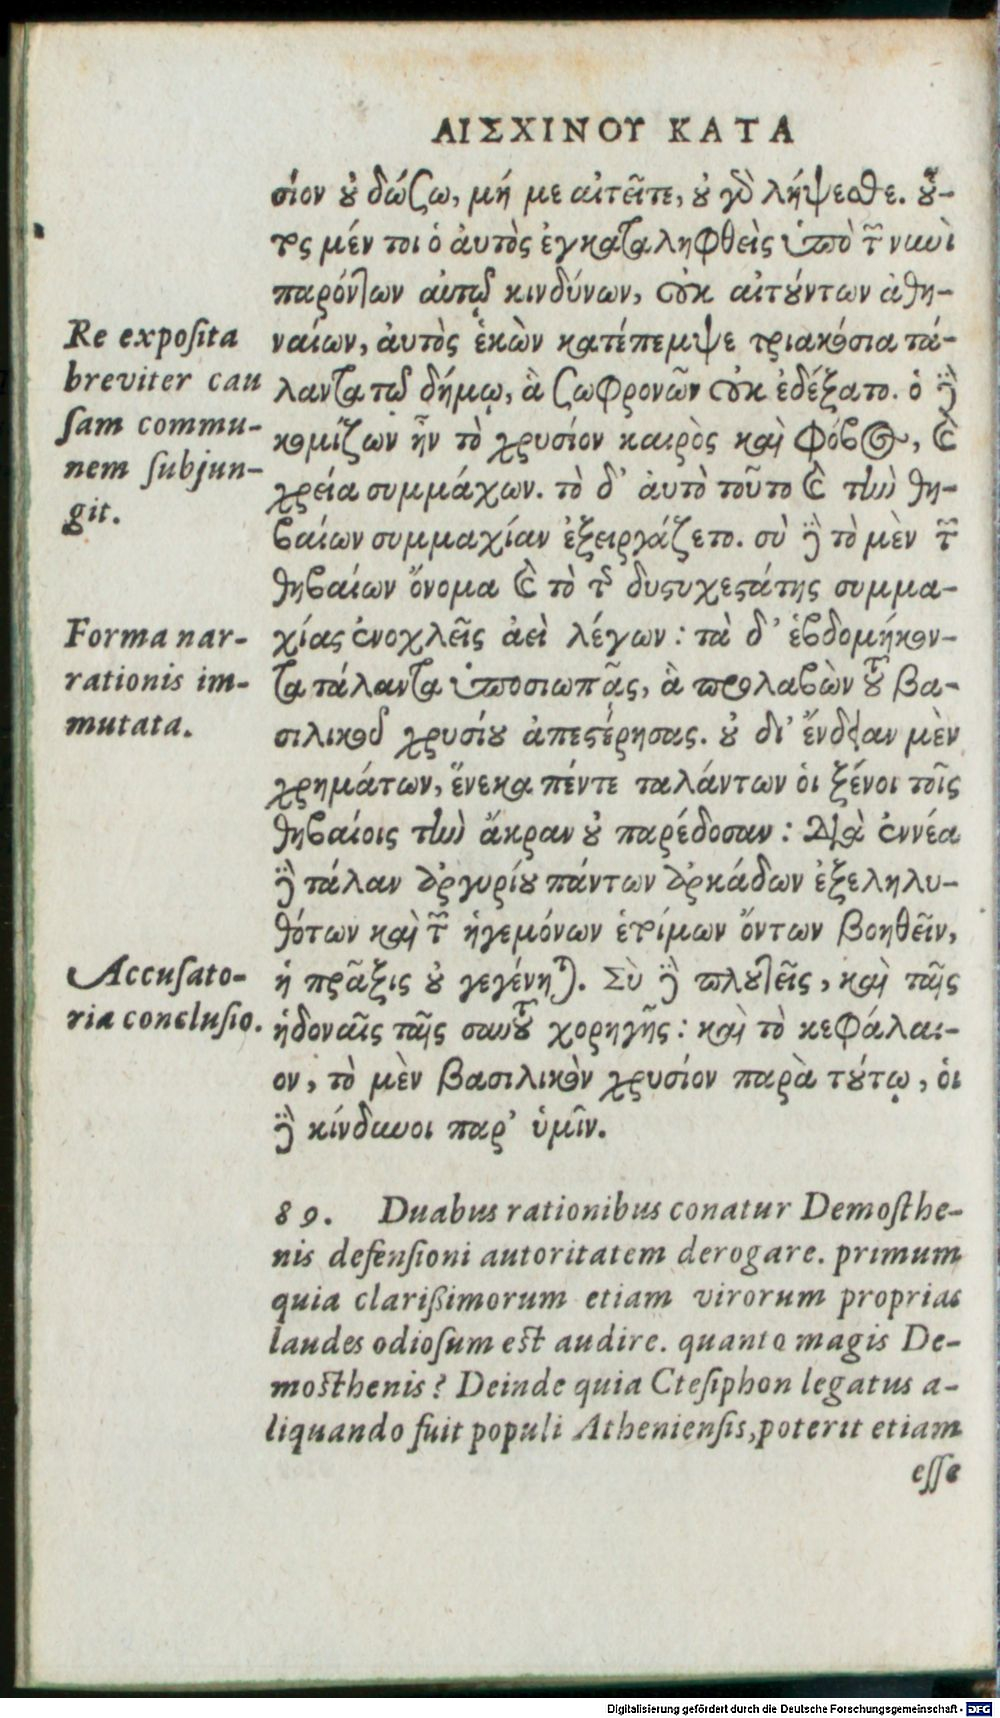 ΑΙΣΧΙΝΟΥ ΚΑΤΑ
σίον οὐ δώσω, μή με αἰτεῖτε, οὐ γὸ λήψεσθε. οὗ-
τος μέν τοι ὁ αὐτὸς ἐγκαταληφθεὶς ὑπὸ τῶν νυνὶ
παρόντων αὐτῷ κινδύνων, οὐκ αἰτούντων ἀθη-
ναίων, αὐτὸς ἑκὼν κατέπεμψε τριακόσια τά-
λαντα τῷ δήμῳ, ἃ σωφρονῶν οὐκ ἐδέξατο. ὁ δὲ
κομίζων ἦν τὸ χρυσίον καιρὸς καὶ φόβος, καὶ
χρεία συμμάχων. τὸ δ' αὐτὸ τοῦτο καὶ τὴν θη-
βαίων συμμαχίαν ἐξειργάζετο. σὺ δὲ τὸ μὲν τῶν
θηβαίων ὄνομα καὶ τὸ τῆς δυστυχεστάτης συμμα-
χίας ἐνοχλεῖς ἀεὶ λέγων : τὰ δ' ἑβδομήκον-
τα τάλαντα ὑποσιωπᾷς, ἃ προλαβὼν τοῦ βα-
σιλικοῦ χρυσίου ἀπεστέρησας. οὐ δι' ἔνδειαν μὲν
χρημάτων, ἕνεκα πέντε ταλάντων οἱ ξένοι τοῖς
θηβαίοις τὴν ἄκραν οὐ παρέδοσαν : Διὰ ἐννέα
δὲ τάλαν ἀργυρίου πάντων ἀρκάδων ἐξεληλυ-
θότων καὶ τῶν ἡγεμόνων ἑτοίμων ὄντων βοηθεῖν,
ἡ πρᾶξις οὐ γεγένηται. Σὺ δὲ πλουτεῖς, καὶ ταῖς
ἡδοναῖς ταῖς σαυτοῦ χορηγῇς : καὶ τὸ κεφάλαι-
ον, τὸ μὲν βασιλικὸν χρυσίον παρὰ τούτῳ, οἱ
δὲ κίνδυνοι παρ' ὑμῖν.
Re exposita
breviter cau
sam commu-
nem subjun-
git.
Forma nar-
rationis im-
mutata.
Accusato-
ria conclusio.
89. Duabus rationibus conatur Demosthe-
nis defensioni autoritatem derogare. primum
quia clarißimorum etiam virorum proprias
laudes odiosum est audire. quanto magis De-
mosthenis? Deinde quia Ctesiphon legatus a-
liquando fuit populi Atheniensis, poterit etiam
esse
Digitalisierung gefördert durch die Deutsche Forschungsgemeinschaft - DFG